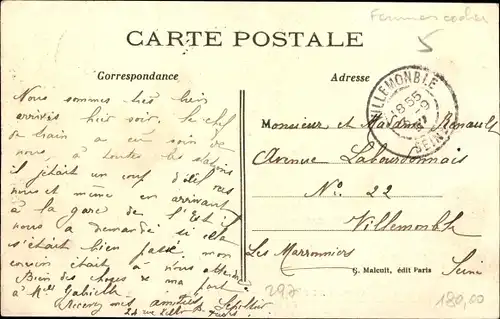 CARTE POSTALE
Correspondance
Adresse
VILLEMONBLE
18 55
SEINE
5
Nous sommes très bien
arrivés hier soir. Le chef
de train a eu soin de
nous, à toutes les stations
il jetait un coup d'œil vers
nous et même en arrivant
à la gare de l'Est il
nous a demandé si cela
s'était bien passé mon
cousin était à nous attendre
Bien des choses de ma part
à Mlle Gabielle
Recevez mes amitiés
Paris
Monsieur et Madame Renault
Avenue Labourdonnais
No. 22
Villemonble
Les Marronniers
Seine
G. Malcuit, édit Paris
297
180,00